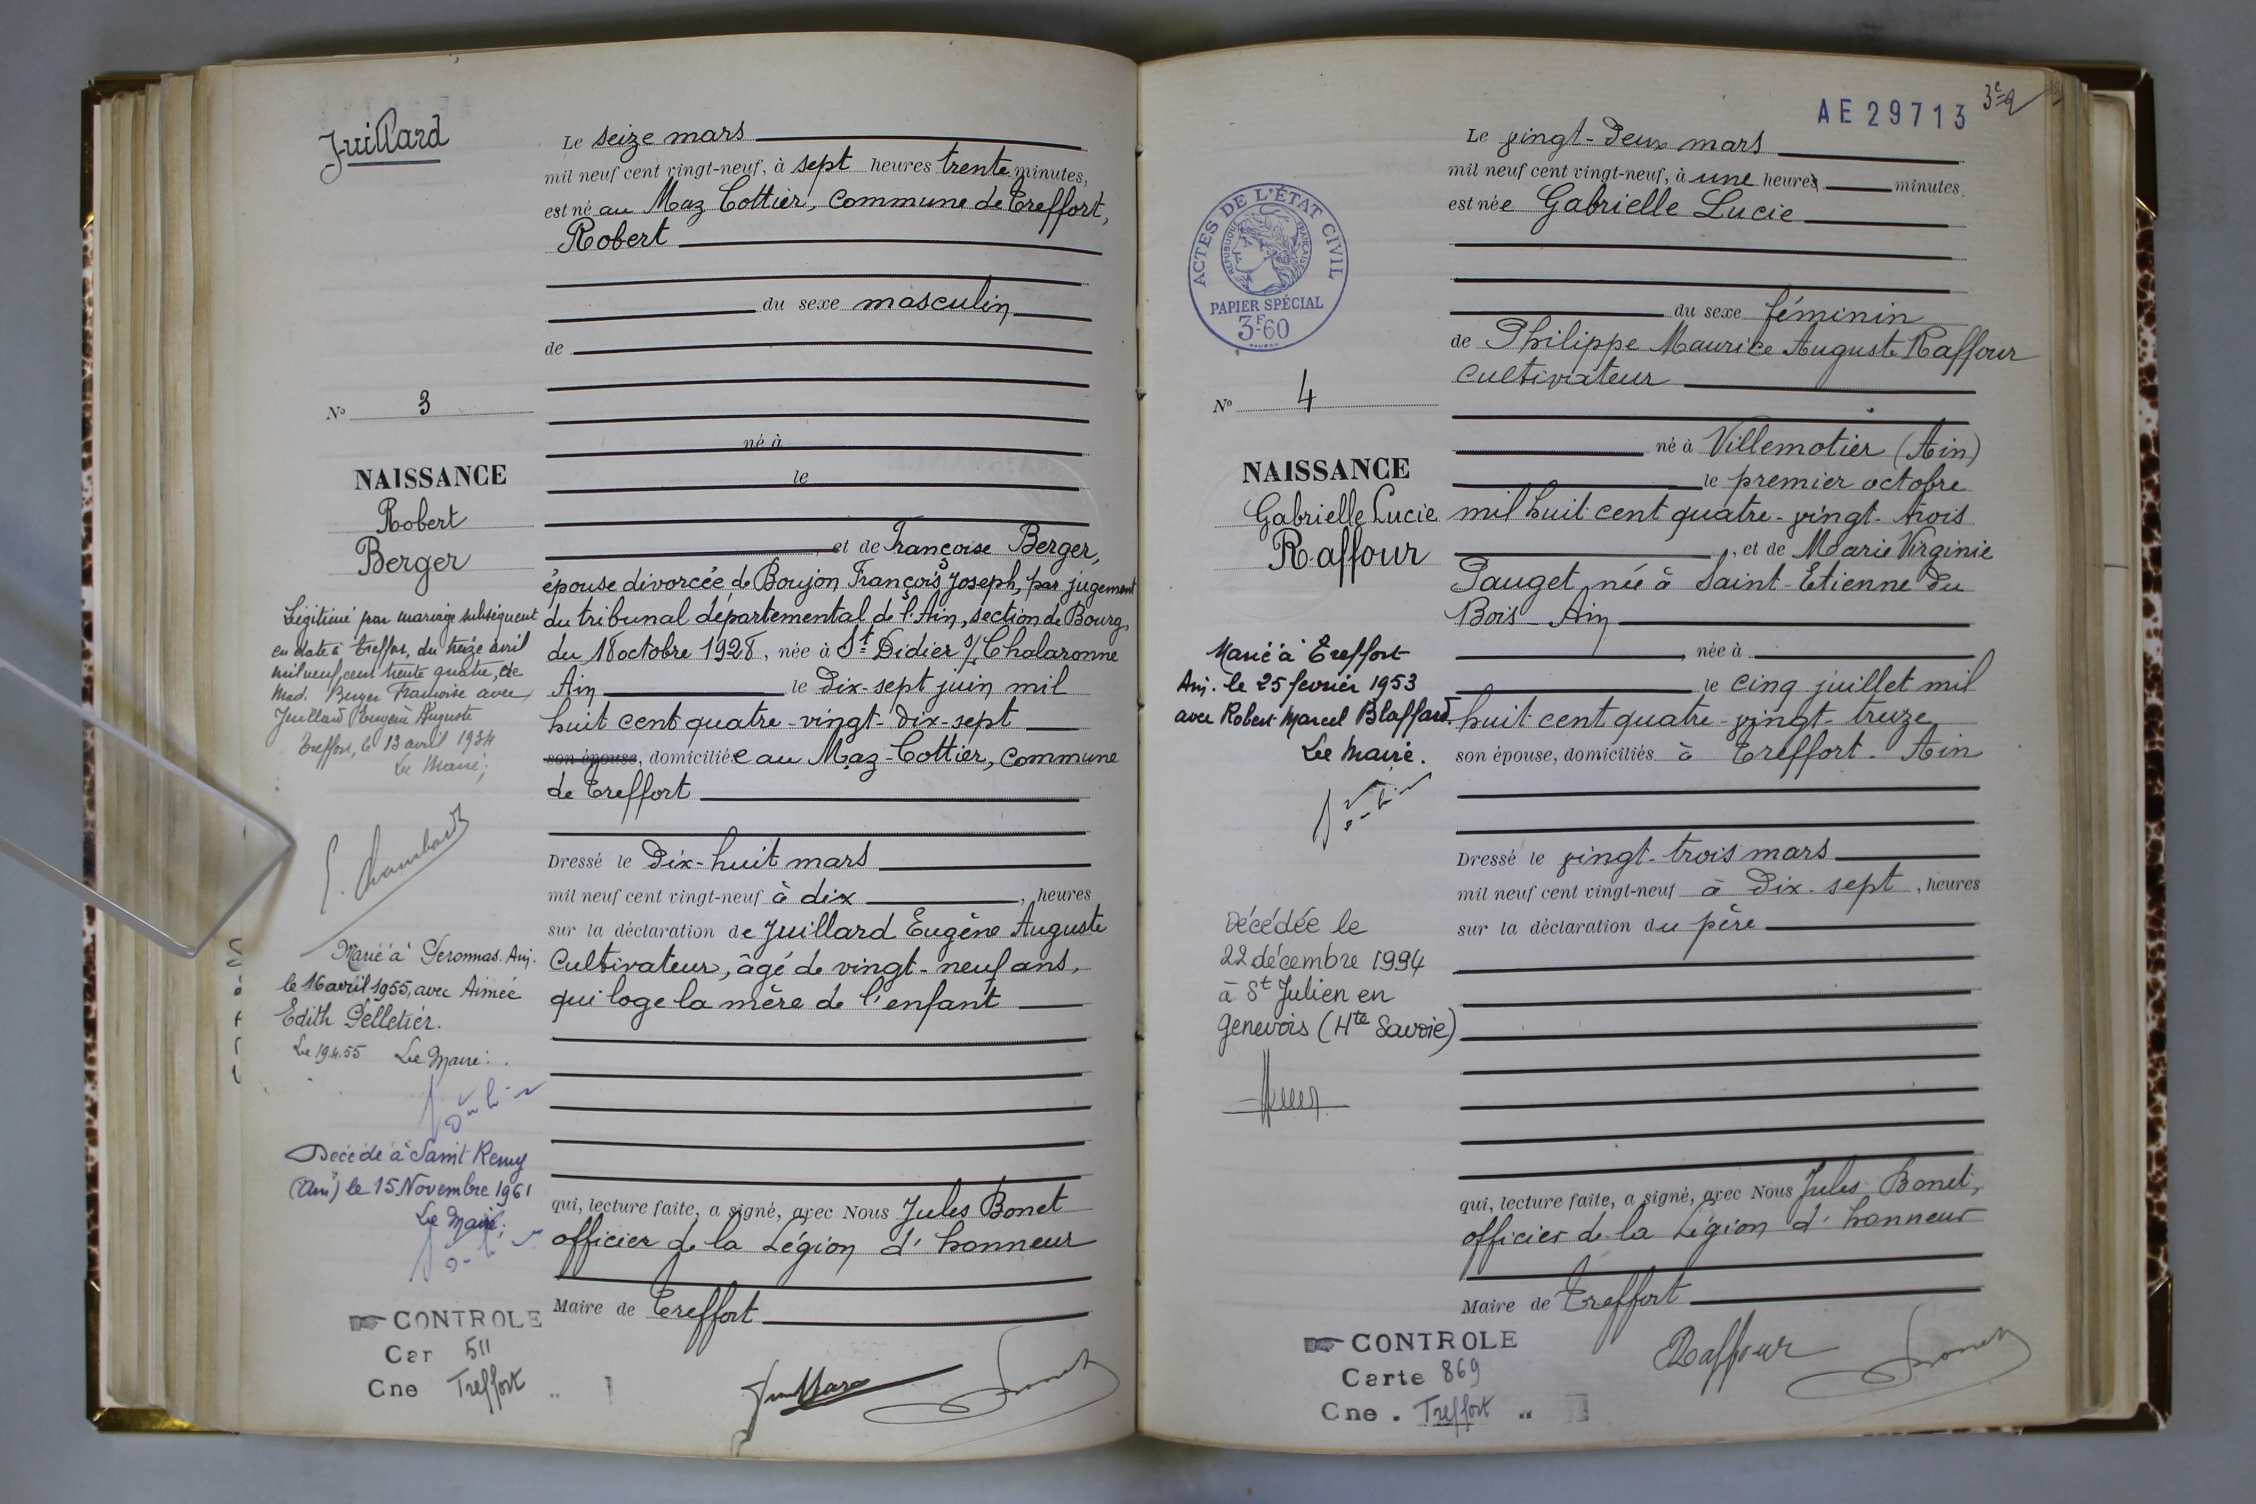 Juillard
Le seize mars
mil neuf cent vingt-neuf, à sept heures trente minutes,
est né au Maz Cottier, commune de Treffort,
Robert
du sexe masculin
de
né à
le
et de Françoise Berger,
épouse divorcée de Boujon François Joseph, par jugement
du tribunal départemental de l'Ain, section de Bourg,
du 18 octobre 1928, née à St Didier s/ Chalaronne
Ain le dix-sept juin mil
huit cent quatre-vingt-dix-sept
son épouse, domiciliée au Maz-Cottier, commune
de Treffort
Dressé le dix-huit mars
mil neuf cent vingt-neuf à dix, heures
sur la déclaration de Juillard Eugène Auguste
Cultivateur, âgé de vingt-neuf ans,
qui loge la mère de l'enfant
qui, lecture faite, a signé, avec Nous Jules Bonet
officier de la Légion d'honneur
Maire de Treffort
Juillard
Bonet
No 3
NAISSANCE
Robert
Berger
Légitimé par mariage subséquent
en date à Treffort, du treize avril
mil neuf cent trente quatre, de
Mad. Berger Françoise avec
Juillard Eugène Auguste
Treffort, le 13 avril 1934
Le Maire;
Marié à Peronnas. Ain.
le 16 avril 1955, avec Aimée
Edith Pelletier.
Le 19.4.55 Le Maire:
Décédé à Saint Remy
(Ain) le 15 Novembre 1961
Le Maire:
CONTROLE
Car 511
Cne Treffort
AE 29713
Le vingt-deux mars
mil neuf cent vingt-neuf, à une heures minutes
est née Gabrielle Lucie
du sexe féminin
de Philippe Maurice Auguste Raffour
cultivateur
né à Villemotier (Ain)
le premier octobre
mil huit cent quatre-vingt-trois
, et de Marie Virginie
Pauget, née à Saint-Etienne du
Bois Ain
née à
le cinq juillet mil
huit cent quatre-vingt-treize
son épouse, domiciliés à Treffort. Ain
Dressé le vingt-trois mars
mil neuf cent vingt-neuf à dix-sept, heures
sur la déclaration du père
qui, lecture faite, a signé, avec Nous Jules Bonet,
officier de la Légion d'honneur
Maire de Treffort
Raffour
Bonet
ACTES DE L'ÉTAT CIVIL
RÉPUBLIQUE FRANÇAISE
PAPIER SPÉCIAL
3F60
No 4
NAISSANCE
Gabrielle Lucie
Raffour
Marié à Treffort
Ain. le 25 fevrier 1953
avec Robert Marcel Blaffard.
Le Maire.
Décédée le
22 décembre 1994
à St Julien en
Genevois (Hte Savoie)
CONTROLE
Carte 869
Cne. Treffort